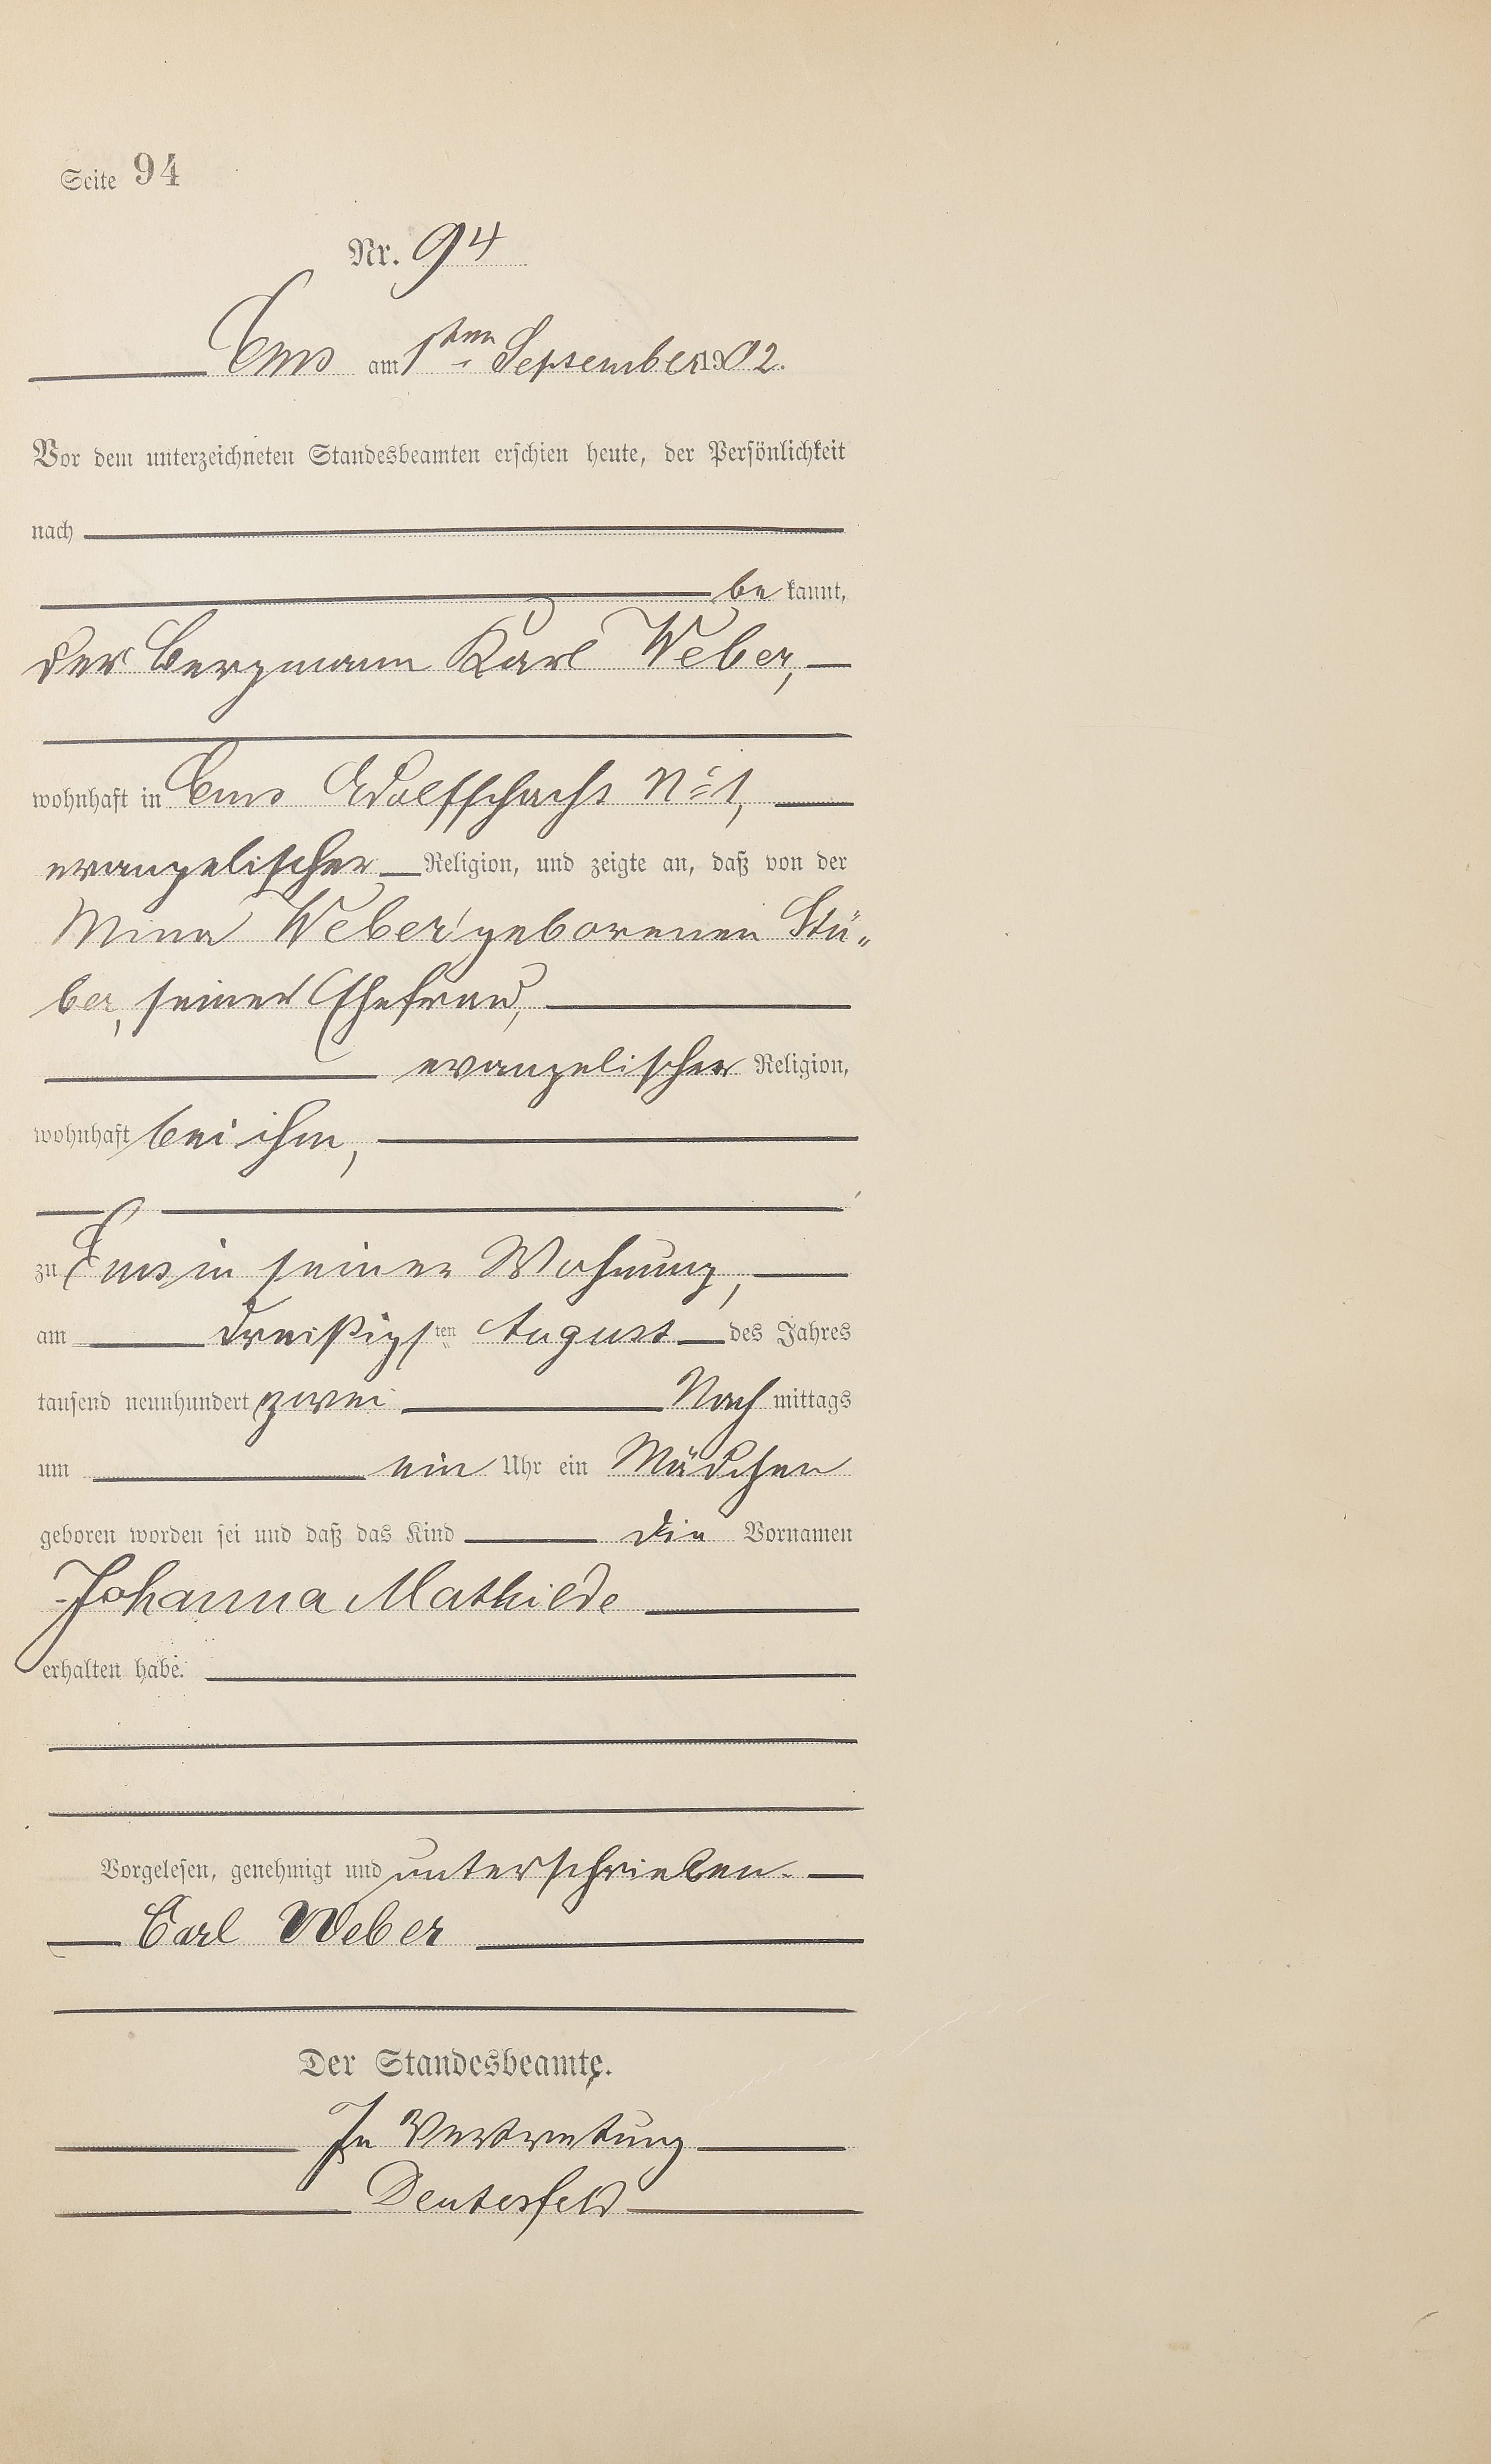 Seite 94
Nr. 94
Ems am 1ten September 1902.
Vor dem unterzeichneten Standesbeamten erschien heute, der Persönlichkeit
nach
be kannt,
der Bergmann Karl Weber,
wohnhaft in Ems Adolfschacht No 1,
evangelischer Religion, und zeigte an, daß von der
Mina Weber geborenen Stü„
ber, seiner Ehefrau,
evangelischer Religion,
wohnhaft bei ihm,
zu Ems in seiner Wohnung,
am dreißigsten August des Jahres
tausend neunhundert zwei Nach mittags
um ein Uhr ein Mädchen
geboren worden sei und daß das Kind die Vornamen
Johanna Mathilde
erhalten habe.
Vorgelesen, genehmigt und unterschrieben.
Carl Weber
Der Standesbeamte.
In Vertretung
Deutesfeld